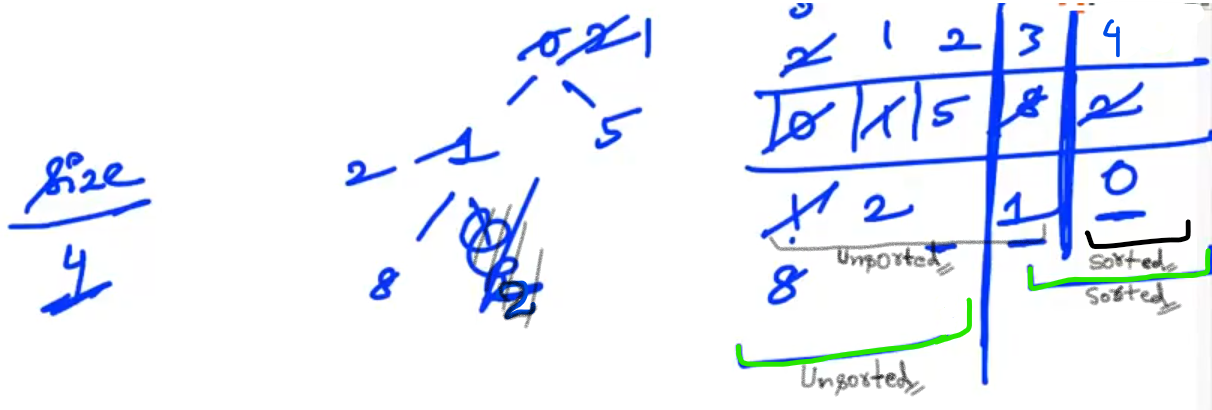 0 2 1
5
2 1
8 2
size
4
0
2 1 2 3 4
0 1 5 8 2
1 2 1 0
Unsorted Sorted
8 Sorted
Unsorted